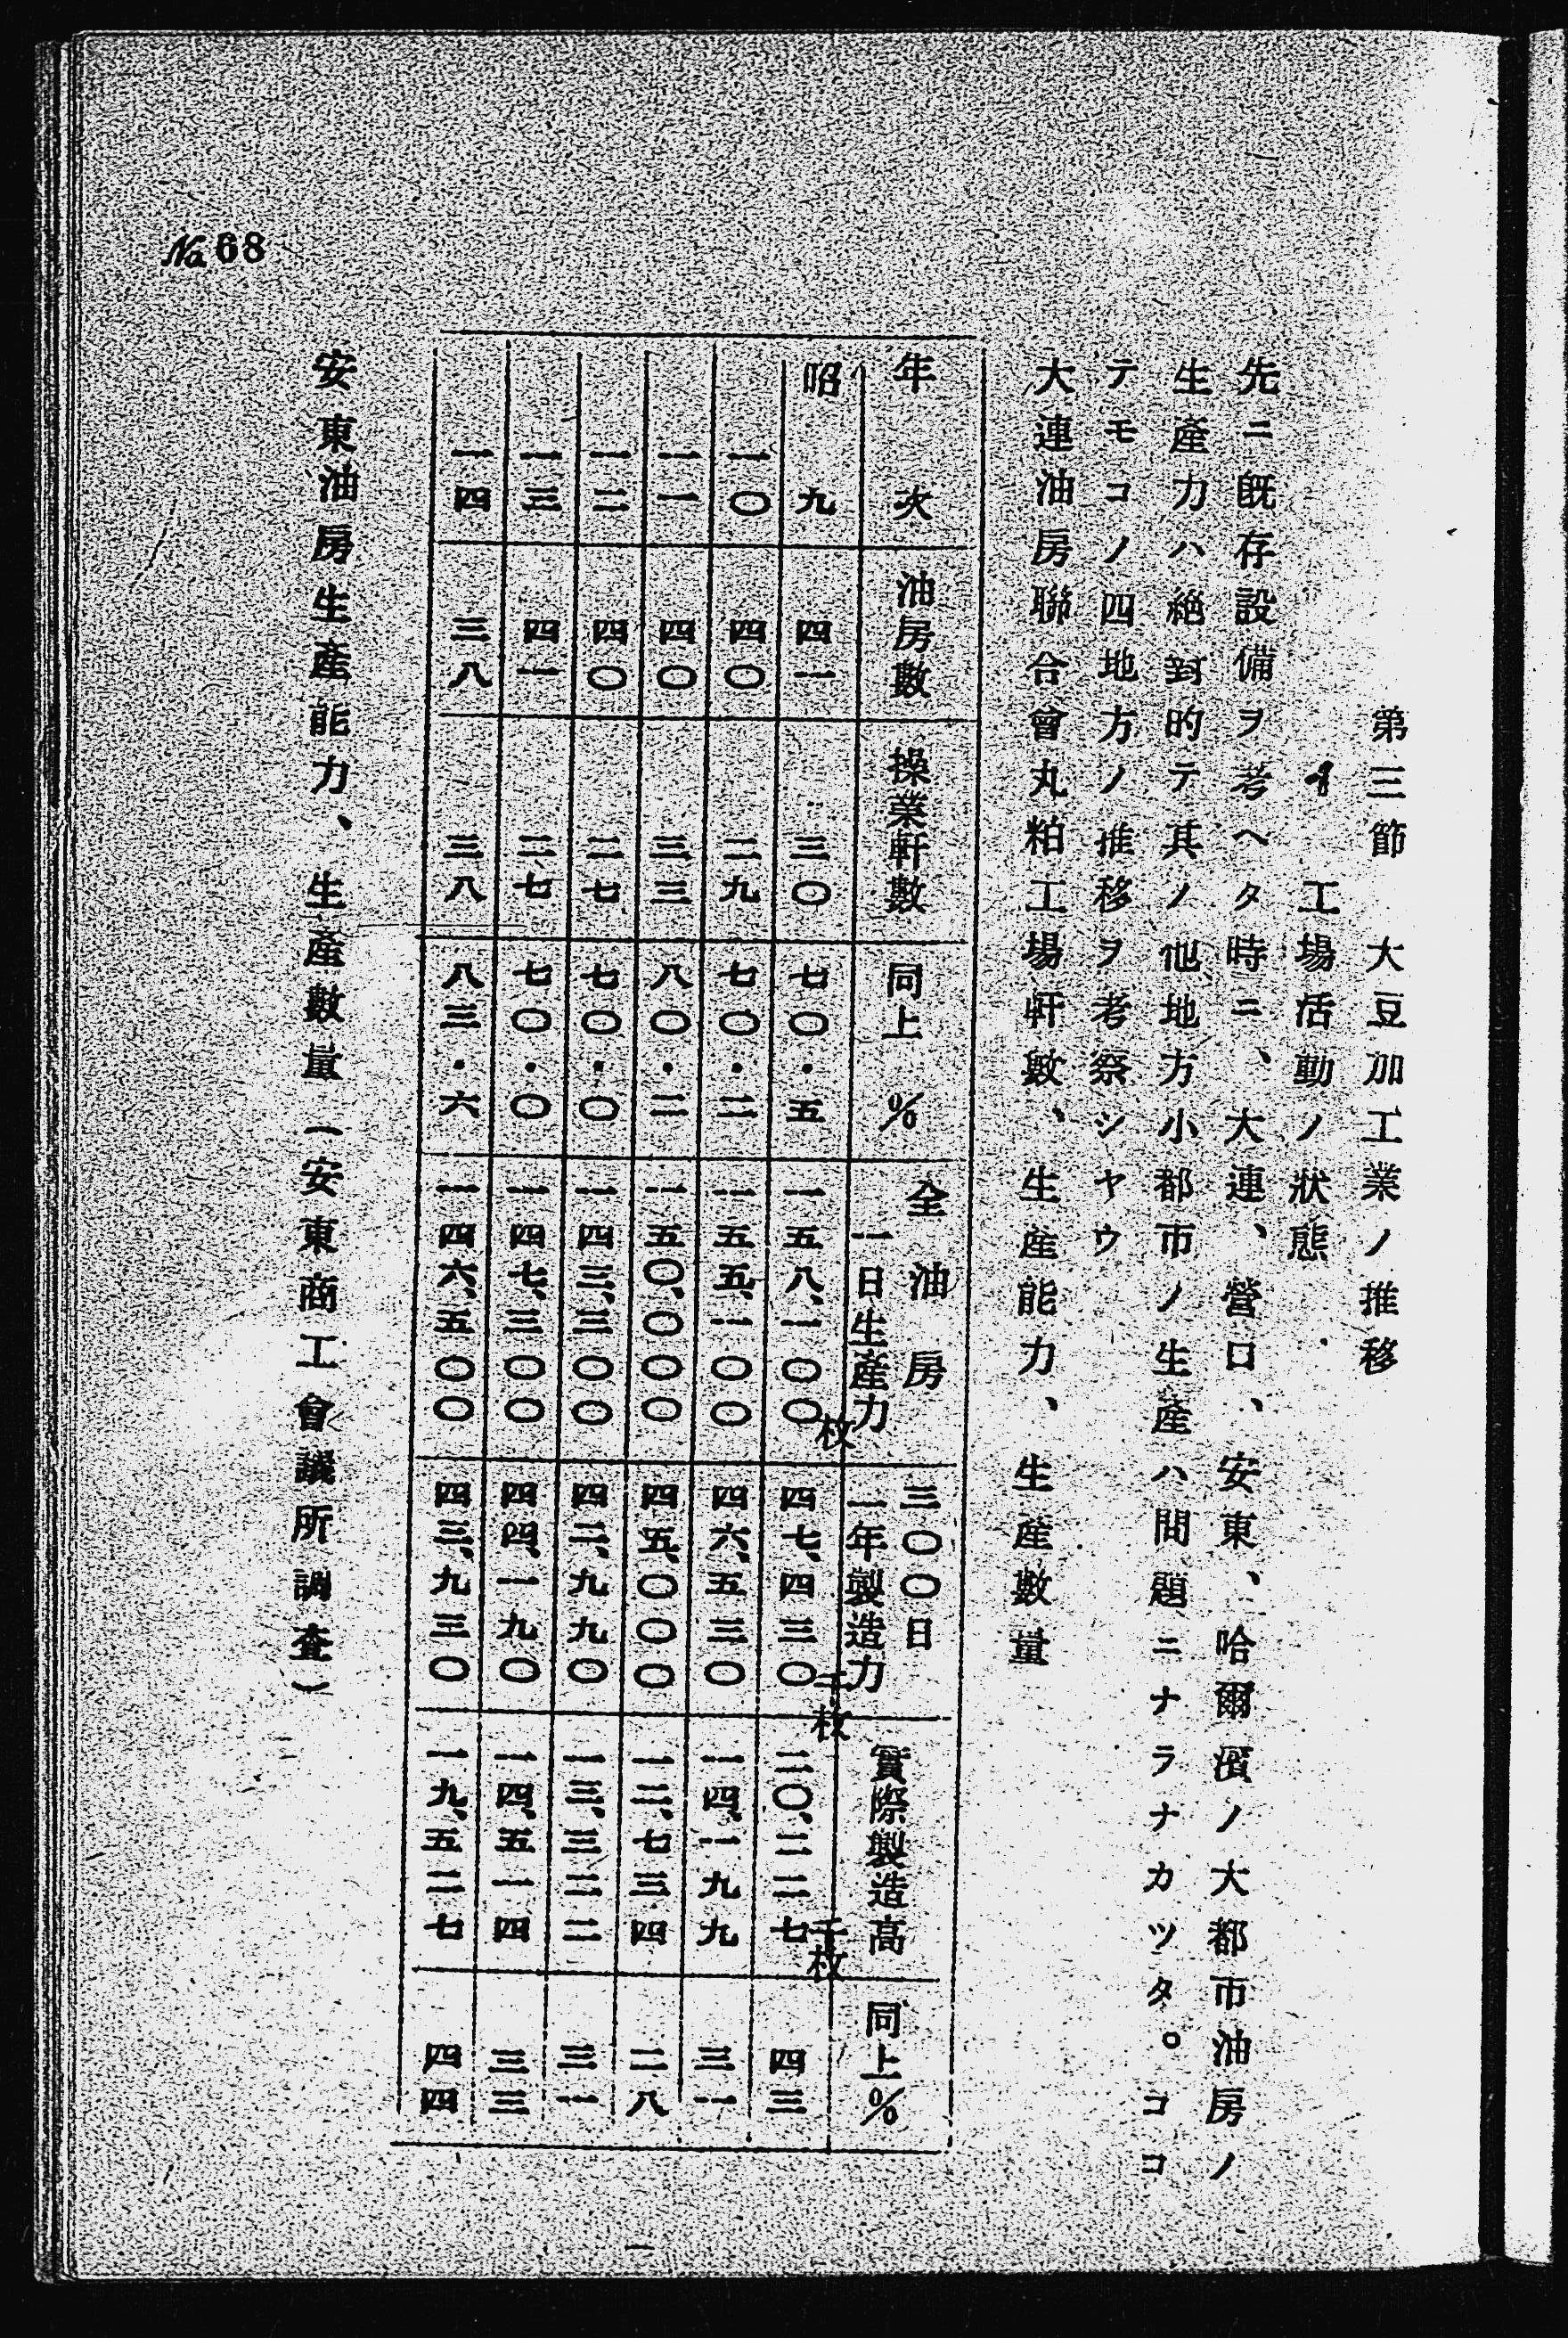 第三節 大豆加工業ノ推移
イ 工場活動ノ狀態
先ニ既存設備ヲ考ヘタ時ニ、大連、營口、安東、哈爾濱ノ大都市油房ノ
生產力ハ絶對的テ其ノ他地方小都市ノ生產ハ問題ニナラナカツタ。ココ
テモコノ四地方ノ推移ヲ考察シヤウ
大連油房聯合會丸粕工場軒數、生産能力、生産數量
年次 油房數 操業軒數 同上% 全油房一日生產力 三〇〇日一年製造力 實際製造高 同上%
昭九 四一 三〇 七〇・五 一五八、一〇〇枚 四七、四三〇千枚 二〇、二二七千枚 四三
一〇 四〇 二九 七〇・二 一五五、一〇〇 四六、五三〇 一四、一九九 三一
一一 四〇 三三 八〇・二 一五〇、〇〇〇 四五、〇〇〇 一二、七三四 二八
一二 四〇 二七 七〇・〇 一四三、三〇〇 四二、九九〇 一三、三二二 三一
一三 四一 二七 七〇・〇 一四七、三〇〇 四四、一九〇 一四、五一四 三三
一四 三八 三八 八三・六 一四六、五〇〇 四三、九三〇 一九、五二七 四四
安東油房生產能力、生產數量(安東商工會議所調査)
№68